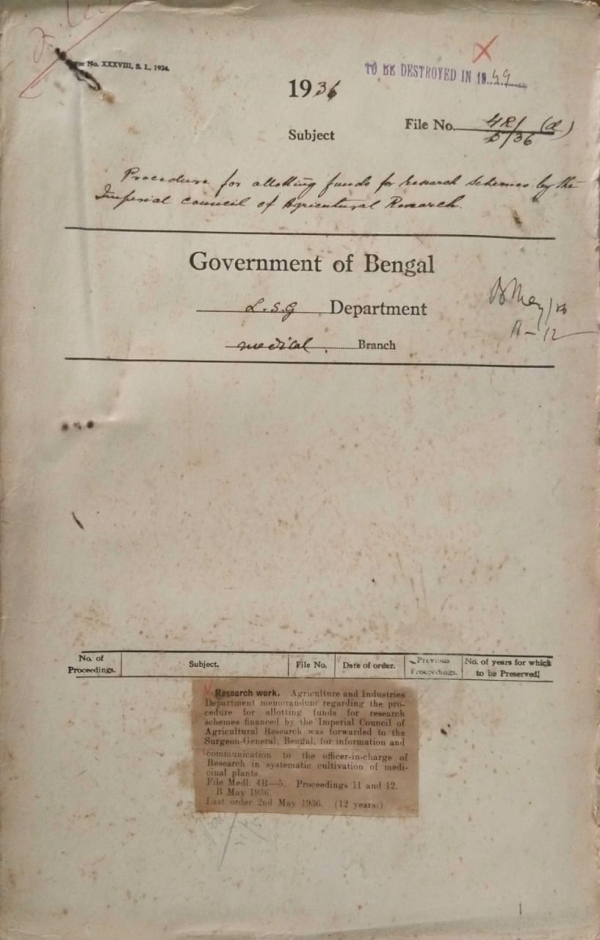 No. XXXVIII, S. L., 1934.
TO BE DESTROYED IN 1949
1936
File No. 4R/ (a)
5/36
Subject
Procedure for allotting funds for research schemes by the
Imperial Council of Agricultural Research.
Government of Bengal
L.S.G Department
B May/36
11-12
medical. Branch
No. of Proceedings.
Subject.
File No.
Date of order.
Previous Proceedings.
No. of years for which to be Preserved.
Research work. Agriculture and Industries
Department memorandum regarding the pro-
cedure for allotting funds for research
schemes financed by the Imperial Council of
Agricultural Research was forwarded to the
Surgeon-General, Bengal, for information and
communication to the officer-in-charge of
Research in systematic cultivation of medi-
cinal plants.
File Medl. 4R—5. Proceedings 11 and 12.
B May 1936.
Last order 2nd May 1936. (12 years.)